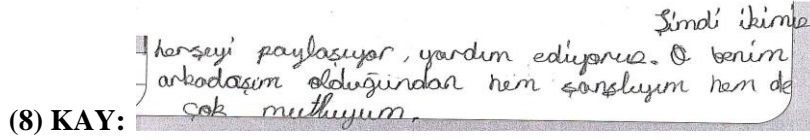 Şimdi ikimiz
herşeyi paylaşıyor, yardım ediyoruz. O benim
arkadaşım olduğundan hem şanslıyım hem de
(8) KAY: çok mutluyum.